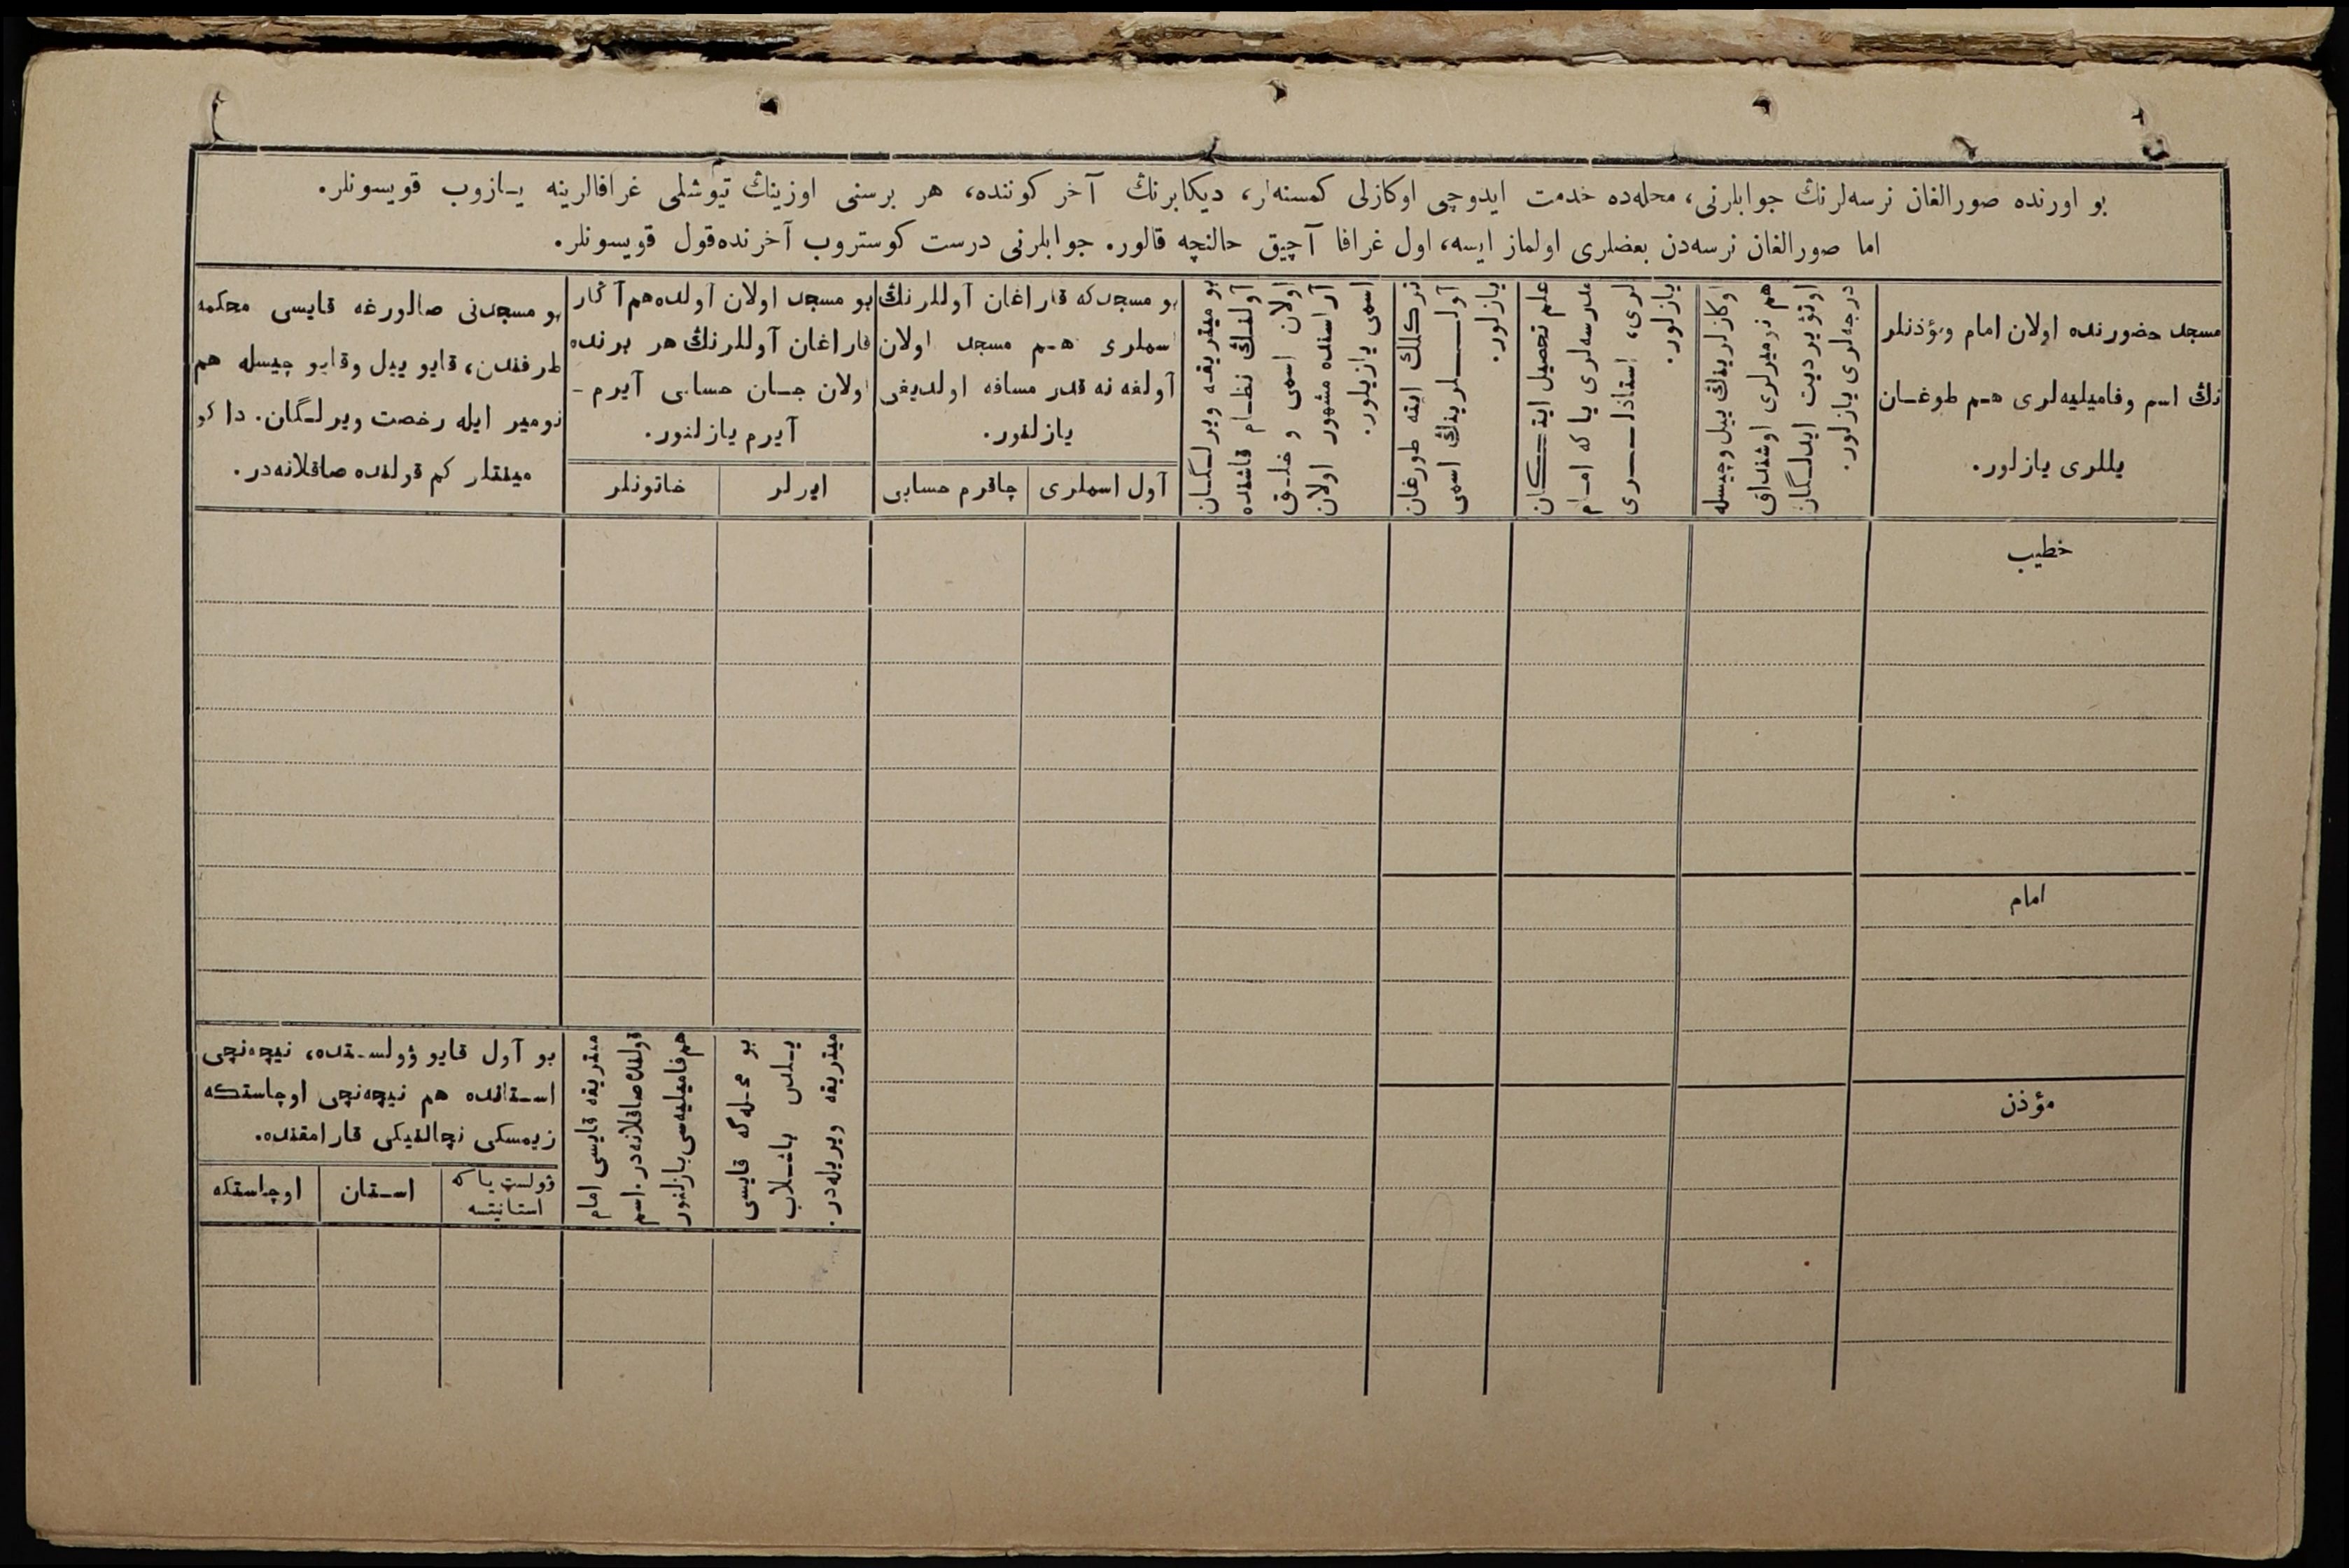 بو اورنده صورالغان نرسه‌لرنڭ جوابلرنی، محله‌ده خدمت ایدوچی اوکازلی کمسنه‌لر، دیکابرنڭ آخر کوننده، هر برسنی اوزینڭ تیوشلی غرافالرینه یازوب قویسونلر.
اما صورالغان نرسه‌دن بعضلری اولماز ایسه، اول غرافا آچیق حالنچه قالور. جوابلرنی درست کوستروب آخرنده قول قویسونلر.
مسجد حضورنده اولان امام ومؤذنلر
نڭ اسم وفامیلیه‌لری هم طوغان
یللری یازلور.
اوکازلرینڭ ییل وچیسله
هم نومیرلری اوشنداق
اوتؤیردیت ایدلگان
درجه‌لری یازلور.
علم تحصیل ایتکان
مدرسه‌لری یا که امام
لری، استاذلری
یازلور.
ترکلک ایته طورغان
آوللرینڭ اسمی
یازلور.
بو میتریقه ویرلگان
آولنڭ نظام قاشنده
اولان اسمی و خلق
آراسنده مشهور اولان
اسمی یازیلور.
بو مسجدکه قاراغان آوللرنڭ
اسملری هم مسجد اولان
آولغه نه قدر مسافه اولدیغی
یازلنور.
آول اسملری
چاقرم حسابی
بو مسجد اولان آولده هم آڭار
قاراغان آوللرنڭ هر برنده
اولان جان حسابی آیرم -
آیرم یازلنور.
ایرلر
خاتونلر
بو مسجدنی صالورغه قایسی محکمه
طرفندن، قایو ییل وقایو چیسله هم
نومیر ایله رخصت ویرلگان. دا کو
مینتلر کم قولنده صاقلانه‌در.
خطیب
امام
مؤذن
بو محله‌گه قایسی
یلدن باشلاب
میتریقه ویریله‌در.
میتریقه قایسی امام
قولنده صاقلانه‌در. اسم
هم فامیلیه‌سی یازلنور
بو آول قایو وولستده، نیچه‌نچی
استانده هم نیچه‌نچی اوچاستکه
زیمسکی نچالنیکی قارامقنده.
وولست یا که
استانیتسه
استان
اوچاستکه